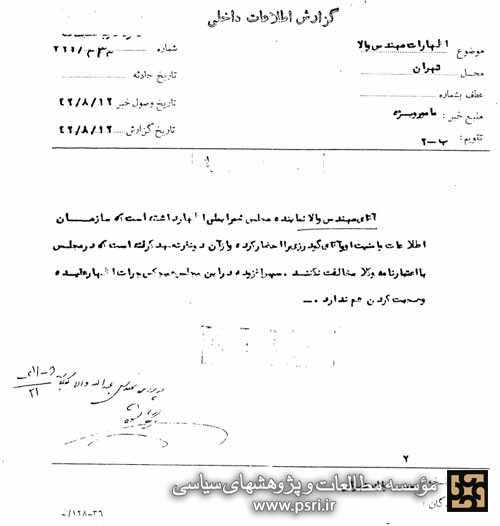 گزارش اطلاعات داخلی
موضوع : اظهارات مهندس والا
محل : تهران
عطف بشماره
منبع خبر : مامور ویژه
تقویم : ب-۲
شماره
تاریخ حادثه
تاریخ وصول خبر ۴۲/۸/۱۲
تاریخ گزارش ۴۲/۸/۱۲
آقای مهندس والا نماینده مجلس شورایملی اظهار داشته است که سازمان
اطلاعات و امنیت او و آقای گودرزی را احضار کرده و از آن دو نفر تعهد گرفته است که در مجلس
با اعتبارنامه وکلا مخالفت نکنند . سپس افزوده در این مجلس هیچکس جرات اظهار عقیده
و صحبت کردن هم ندارد .-
۲
مؤسسه مطالعات و پژوهشهای سیاسی
www.psri.ir